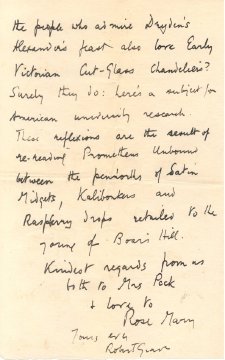 the people who admire Dryden's
Alexander's feast also love Early
Victorian Cut-Glass Chandeliers?
Surely they do: here's a subject for
American university research.
These reflexions are the result of
re-reading Prometheus Unbound
between the pennorths of Satin
Midgets, Kalibonkers and
Raspberry drops retailed to the
young of Boar's Hill.
Kindest regards from us
both to Mrs Pock
& love to
Rose Mary
Yours ever
Robert Graves